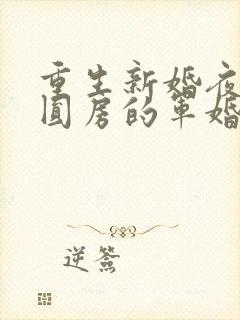 重生新婚夜
圆房的军婚
逆簽